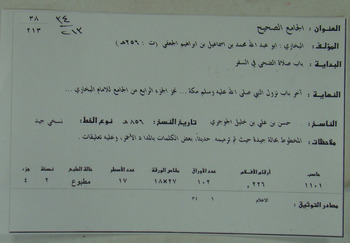 العنوان : الجامع الصحيح ٣٤ ٣٨
٢١٣ ٢١٣
المؤلف : البخاري ، ابو عبد الله محمد بن اسماعيل بن ابراهيم الجعفي ( ت : ٢٥٦هـ )
البداية : باب صلاة الضحى في السفر
النهاية : آخر باب نزول النبي صلى الله عليه وسلم مكة ... نجز الجزء الرابع من الجامع للامام البخاري ...
الناسخ : حسن بن علي بن خليل تاريخ النسخ: ٨٥٦هـ نوع الخط: نسخي جيد
ملاحظات: المخطوط بحالة جيدة حيث تم ترميمه حديثاً، بعض الكلمات بالمداد الأحمر، وعليه تعليقات .
حاسب أرقام الأفلام عدد الأوراق مقاس الورقة عدد الأسطر حالة الفيلم نسخة جزء
١١٠١ ٢٢٦ ١٠٢ ٢٧×١٨ ١٧ مطبوع ٢ ٤
الافلام ١ ٣٤
مصادر التوثيق :